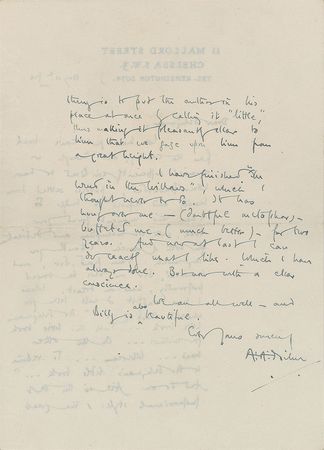 thing is to put the author in his
place at once by calling it "little,"
thus making it pleasantly clear to
him that we gaze upon him from
a great height.
I have finished "The
Wind in the Willows", which I
thought never to do. It has
hung over me — (doubtful metaphor) —
buffeted me (much better) — for two
years. And now at last I can
do exactly what I like. Which I have
always done. But now with a clear
conscience.
We are all well — and
Billy is also beautiful.
Ever yours
A.A. Milne
11 MALLORD STREET
CHELSEA S.W.3.
TEL. KENSINGTON 2074.